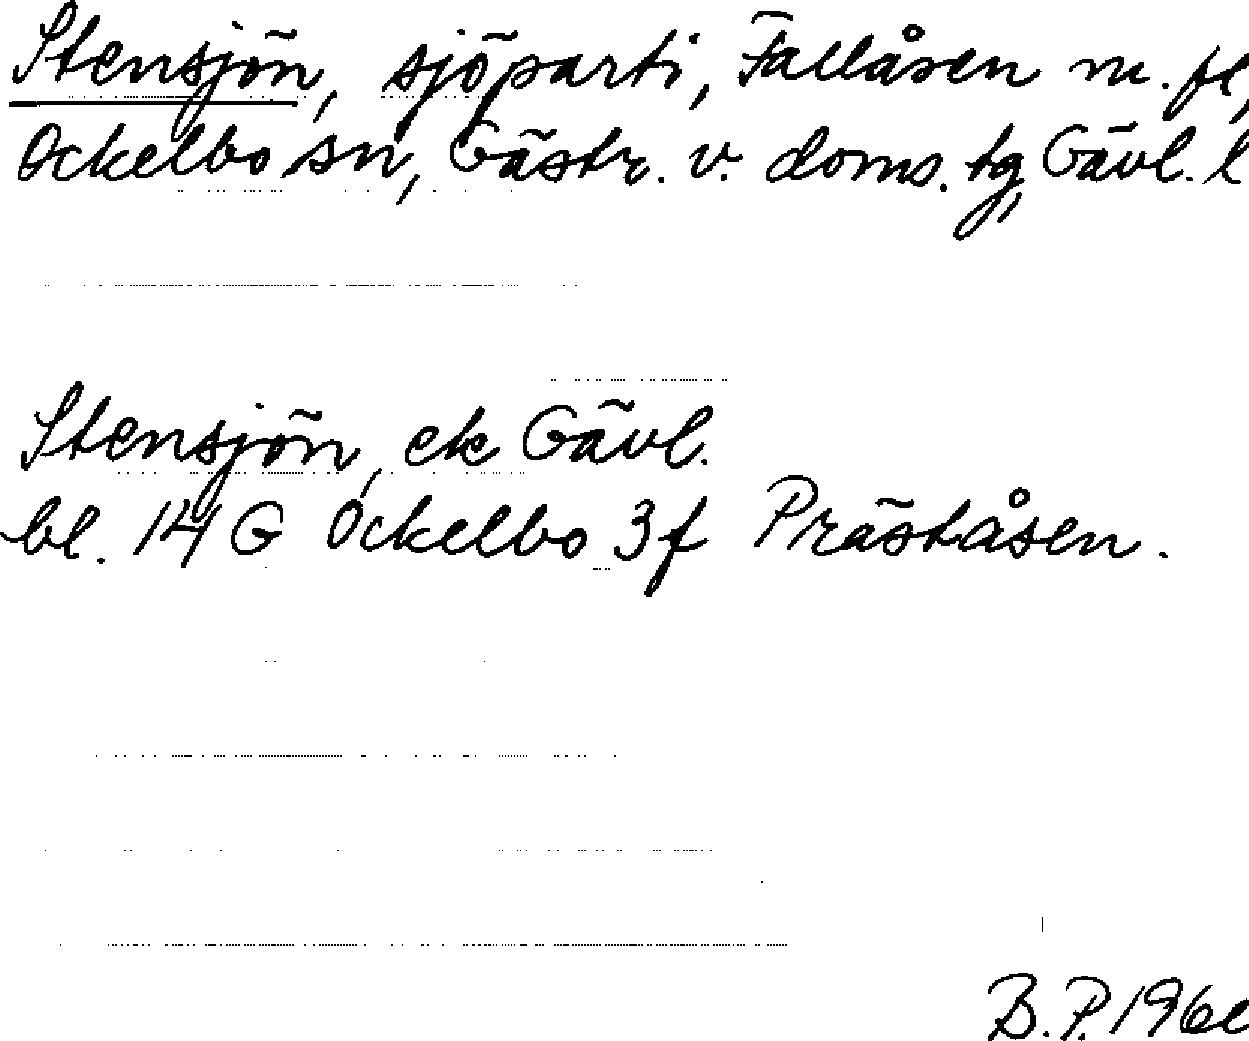 Stensjön, sjöparti, Fallåsen m. fl,
Ockelbo sn, Gästr. v. doms. tg, Gävl. l
Stensjön, ek Gävl.
bl. 14 G Ockelbo 3f Präståsen.
B.P. 196